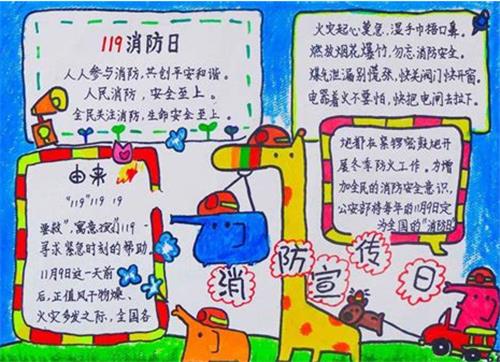 119消防日
人人参与消防，共创平安和谐。
人民消防，安全至上。
全民关注消防，生命安全至上。
火灾起心莫急，湿手巾捂口鼻。
燃放烟花爆竹，勿忘消防安全。
煤气泄漏别慌张，快关阀门快开窗。
电器着火不要怕，快把电闸去拉下。
由来
"119"119 19
，寓意我们119
寻求紧急时刻的帮助。
11月9日这一天前
后，正值风干物燥、
火灾多发之际，全国各
地都在紧锣密鼓地开
展冬季防火工作。为增
加全民的消防安全意识，
公安部将每年的11月9日定
为全国的"消防日
消防宣传日